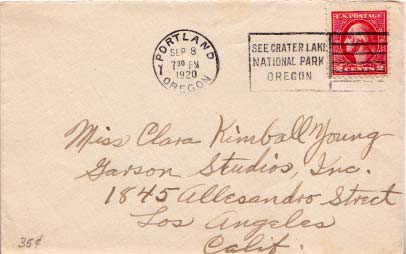 PORTLAND
SEP 8
7 30 PM
1920
OREGON
SEE CRATER LAKE
NATIONAL PARK
OREGON
U.S. POSTAGE
2 CENTS 2
Miss Clara Kimball Young
Garson Studios, Inc.
1845 Allesandro Street
Los Angeles
Calif.
35¢